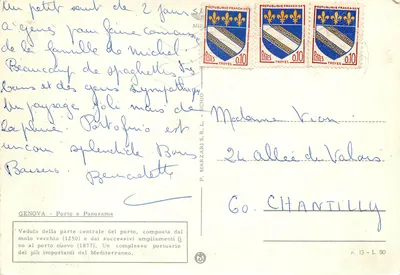 Un petit saut de 2 jours
a gênes pour faire connaissance
de la famille de Michel.
Beaucoup de spaghettis très
bons et des gens sympathiques
du paysage joli mais de
la pluie. Portofino est
un coin splendide Bons
Baisers. Bernadette
GENOVA - Porto e Panorama
Veduta della parte centrale del porto, composta dal
molo vecchio (1250) e dai successivi ampliamenti
no al porto nuovo (1877). Un complesso portuario
dei più importanti del Mediterraneo.
P. MARZARI S.R.L. - SCHIO
REPUBLIQUE FRANÇAISE
POSTES 0,10
TROYES
REPUBLIQUE FRANÇAISE
POSTES 0,10
TROYES
REPUBLIQUE FRANÇAISE
POSTES 0,10
TROYES
Madame Vion
24 Allée du Valois
60. CHANTILLY
n. 13 - L. 50